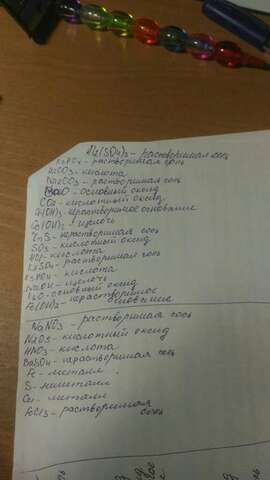 Al2(SO4)3 - растворимая соль
K3PO4 - растворимая соль
H2CO3 - кислота
Na2CO3 - растворимая соль
BaO - основный оксид
CO2 - кислотный оксид
нерастворимое основание
Ca(OH)2 - щелочь
ZnS - нерастворимая соль
SO3 - кислотный оксид
кислота
K2SO4 - растворимая соль
H3PO4 - кислота
NaOH - щелочь
основный оксид
Fe(OH)2 - нерастворимое
основание
NaNO3 - растворимая соль
кислотный оксид
HNO3 - кислота
BaSO4 - нерастворимая соль
Fe - металл
S - неметалл
Cu - металл
FeCl3 - растворимая
соль